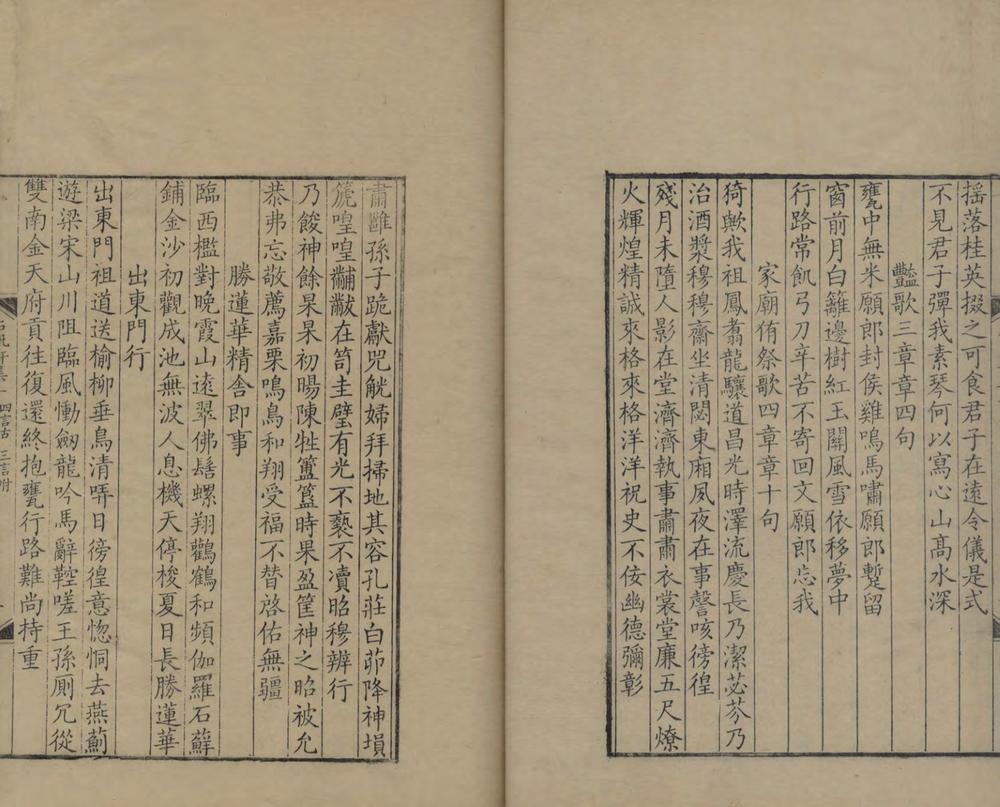 搖落桂英掇之可食君子在遠令儀是式
不見君子彈我素琴何以寫心山高水深
豔歌三章章四句
甕中無米願郎封侯雞鳴馬嘯願郎蹔留
窗前月白籬邊樹紅玉關風雪依移夢中
行路常飢弓刀辛苦不寄回文願郎忘我
家廟侑祭歌四章章十句
猗歟我祖鳳翥龍驤道昌光時澤流慶長乃潔苾芬乃
治酒漿穆穆齋坐清閟東廂夙夜在事謦咳徬徨
殘月未墮人影在堂濟濟執事肅肅衣裳堂廉五尺燎
火輝煌精誠來格來格洋洋祝史不侫幽德彌彰
肅雝孫子跪獻兕觥婦拜掃地其容孔莊白茆降神塤
箎喤喤黼黻在笥圭璧有光不褻不瀆昭穆辨行
乃餕神餘杲杲初暘陳牲簠簋時果盈筐神之昭被允
恭弗忘敬薦嘉栗鳴鳥和翔受福不替啓佑無疆
勝蓮華精舍即事
臨西檻對晚霞山遠翠佛髻螺翔鸛鶴和頻伽羅石蘚
鋪金沙初觀成池無波人息機天停梭夏日長勝蓮華
出東門行
出東門祖道送榆柳垂鳥清哢日徬徨意惚恫去燕薊
遊梁宋山川阻臨風慟劒龍吟馬辭鞚嗟王孫厠冗從
雙南金天府貢往復還終抱甕行路難尚持重
四言古 三言附